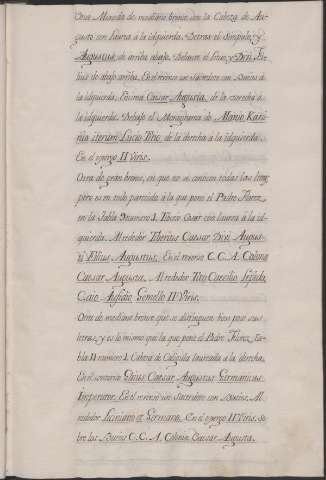 Otra Moneda de mediano bronce con la Cabeza de Au-
gusto con laurea a la izquierda. Detras el Simpulo, y
Augustus de arriba abajo. Delante el lituo, y Divi Fi-
lius de abajo arriba. En el reverso un Sacerdote con Bueies á
la izquierda. Encima Caesar Augusta, de la derecha a
la izquierda. Debajo el Monograma de Manio Kani-
nia iterum Lucio Titio, de la derecha a la izquierda.
En el exergo II Viris.
Otra de gran bronce, en que no se conocen todas las
pero es en todo parecida a la que pone el Padre Florez
en la Tabla 9 numero 1. Tiberio Cesar con laurea á la iz-
quierda. Al rededor Tiberius Caesar Divi Augus-
ti Filius Augustus. En el reverso C. C. A. Colonia
Caesar Augusta. Al rededor Tito Caecilio Lepido,
Caio Aufidio Gemello II Viris.
Otra de mediano bronce que se distinguen bien sus
letras, y es lo mismo que la que pone el Padre Florez, Ta-
bla 11 numero 1. Cabeza de Caligula laureada a la derecha.
En el contorno Gaius Caesar Augustus Germanicus
Imperator. En el reverso un Sacerdote con Bueies. Al
rededor Liciniano et Germano. En el exergo II Viris. So-
bre los Bueies C. C. A. Colonia Caesar Augusta.